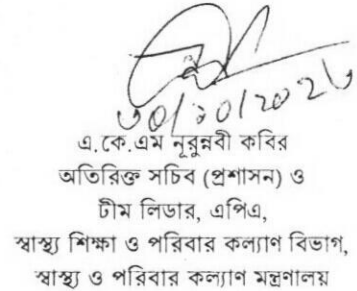 এ.কে.এম নূরুন্নবী কবির
অতিরিক্ত সচিব (প্রশাসন) ও
টীম লিডার, এপিএ,
স্বাস্থ্য শিক্ষা ও পরিবার কল্যাণ বিভাগ,
স্বাস্থ্য ও পরিবার কল্যাণ মন্ত্রণালয়